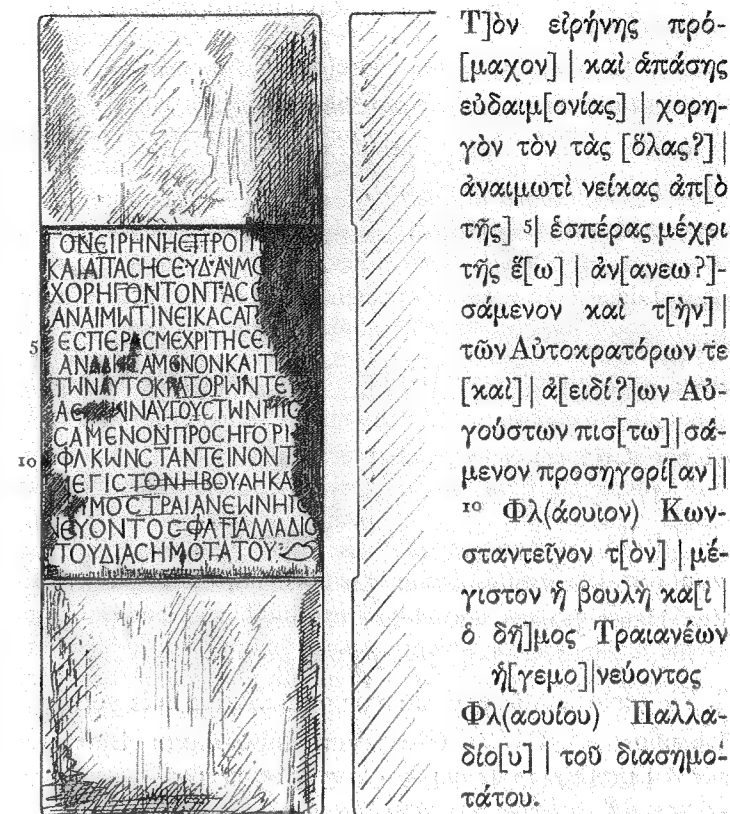 ΤΟΝΕΙΡΗΝΗϹΠΡΟΙ
ΚΑΙΑΠΑϹΗϹΕΥΔΑΙΜΟ
ΧΟΡΗΓΟΝΤΟΝΤΑϹ
ΑΝΑΙΜωΤΙΝΕΙΚΑϹΑΠ
5 ΕϹΠΕΡΑϹΜΕΧΡΙΤΗϹΕ
ΑΝ ϹΑΜΕΝΟΝΚΑΙΤ
ΤωΝΑΥΤΟΚΡΑΤΟΡωΝΤΕ
ΑΕ ωΝΑΥΓΟΥϹΤωΝΠΙϹ
ϹΑΜΕΝΟΝΠΡΟϹΗΓΟΡΙ
10 ΦΛΚωΝϹΤΑΝΤΕΙΝΟΝΤ
ΙΕΓΙϹΤΟΝΗΒΟΥΛΗΚΑ
ΜΟϹΤΡΑΙΑΝΕωΝΗΓ
ΝΕΥΟΝΤΟϹΦΛΠΑΛΛΑΔΙΟ
ΤΟΥΔΙΑϹΗΜΟΤΑΤΟΥ
Τ]ὸν εἰρήνης πρό-
[μαχον] | καὶ ἁπάσης
εὐδαιμ[ονίας] | χορη-
γὸν τὸν τὰς [ὅλας?] |
ἀναιμωτὶ νείκας ἀπ[ὸ
τῆς] 5| ἑσπέρας μέχρι
τῆς ἕ[ω] | ἀν[ανεω?]-
σάμενον καὶ τ[ὴν] |
τῶν Αὐτοκρατόρων τε
[καὶ] | ἀ[ειδί?]ων Αὐ-
γούστων πισ[τω] | σά-
μενον προσηγορί[αν] |
10 Φλ(άουιον) Κων-
σταντεῖνον τ[ὸν] | μέ-
γιστον ἡ βουλὴ κα[ὶ |
ὁ δῆ]μος Τραιανέων
ἡ[γεμο]|νεύοντος
Φλ(αουίου) Παλλα-
δίο[υ] | τοῦ διασημο-
τάτου.